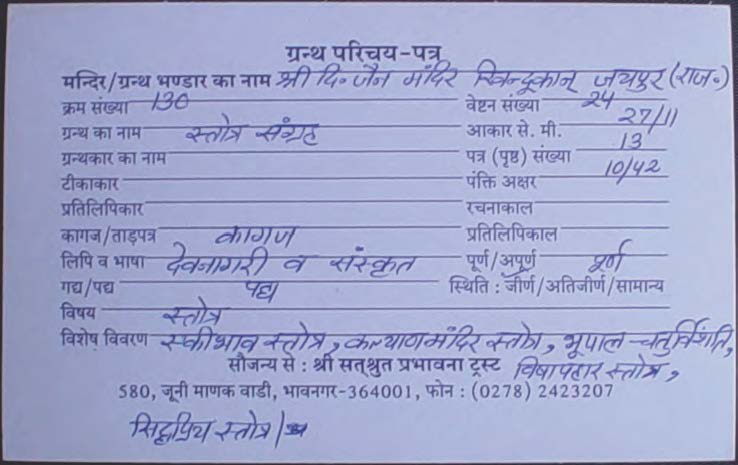 ग्रन्थ परिचय-पत्र
मन्दिर/ग्रन्थ भण्डार का नाम श्री दि॰ जैन मंदिर खिन्दूकान् जयपुर (राज॰)
क्रम संख्या 130 वेष्टन संख्या 24
ग्रन्थ का नाम स्तोत्र संग्रह आकार से. मी. 27/11
ग्रन्थकार का नाम पत्र (पृष्ठ) संख्या 13
टीकाकार पंक्ति अक्षर 10/42
प्रतिलिपिकार रचनाकाल
कागज/ताड़पत्र कागज प्रतिलिपिकाल
लिपि व भाषा देवनागरी व संस्कृत पूर्ण/अपूर्ण पूर्ण
गद्य/पद्य पद्य स्थिति : जीर्ण/अतिजीर्ण/सामान्य
विषय स्तोत्र
विशेष विवरण एकीभाव स्तोत्र, कल्याणमंदिर स्तोत्र, भूपाल चतुर्विंशति,
सौजन्य से : श्री सत्श्रुत प्रभावना ट्रस्ट विषापहार स्तोत्र,
580, जूनी माणक वाडी, भावनगर-364001, फोन : (0278) 2423207
सिद्धिप्रिय स्तोत्र /